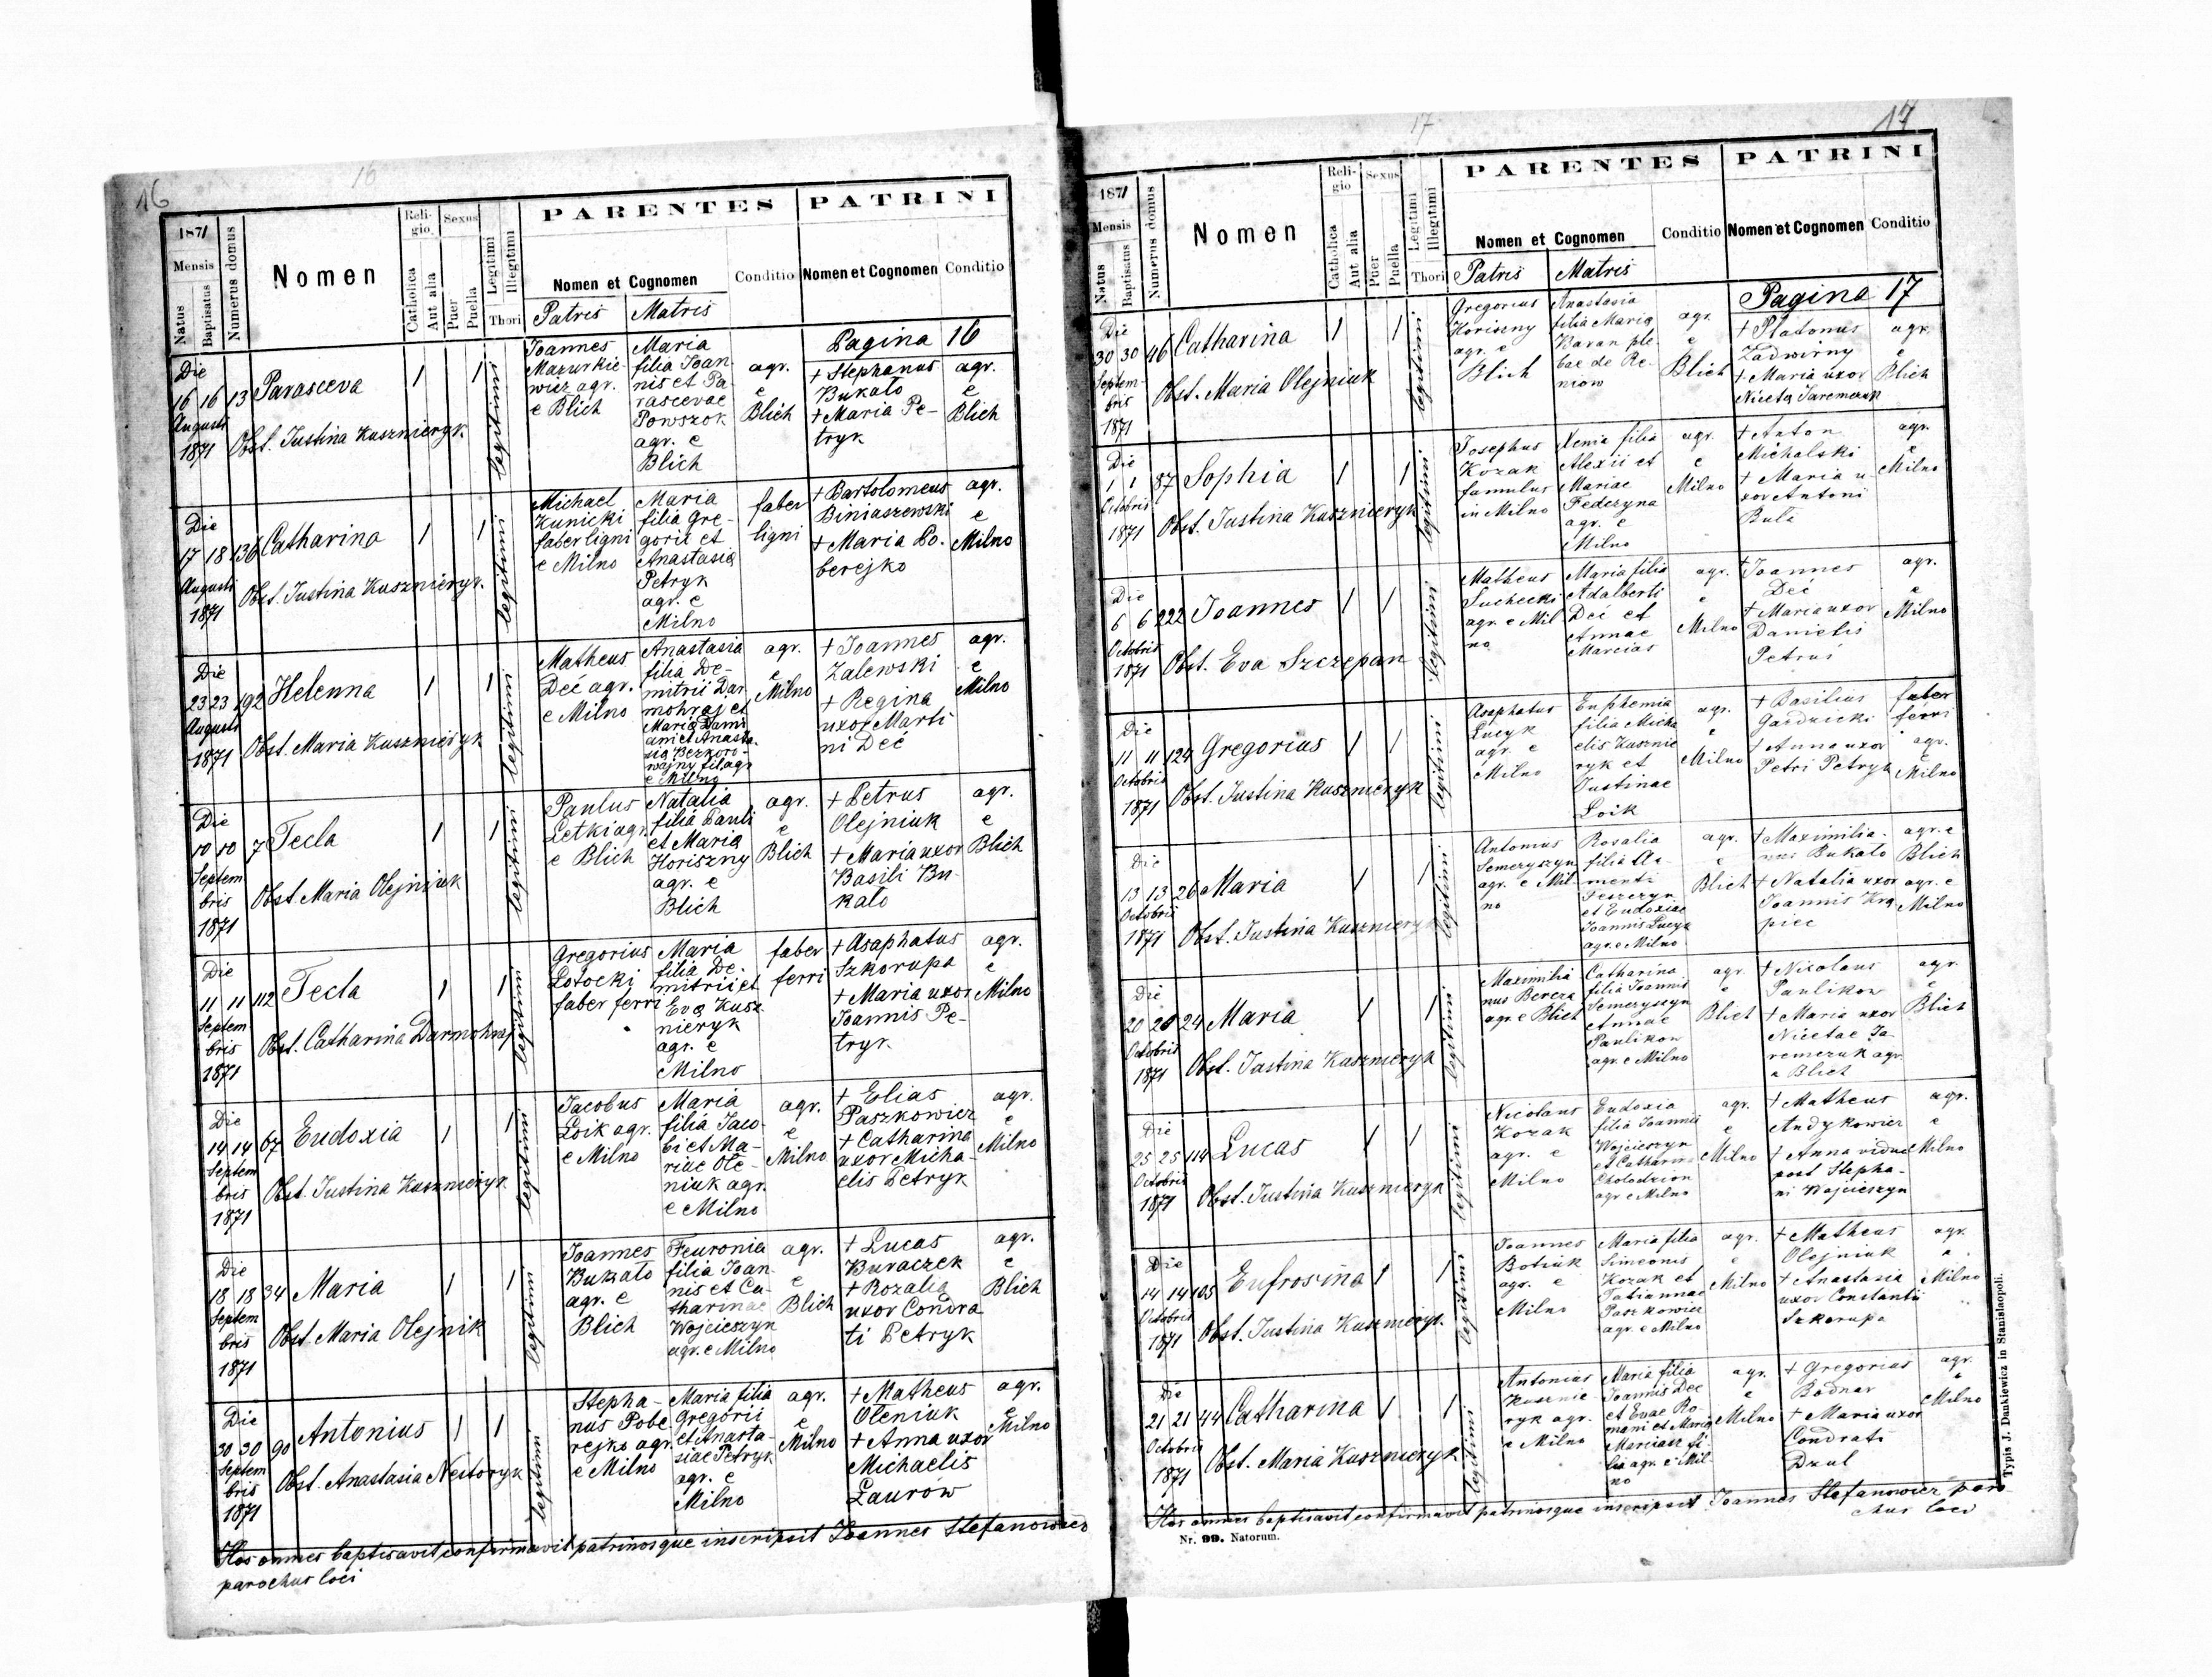 16
16
1871
Mensis
Natus
Baptisatus
Numerus domus
Nomen
Religio
Catholica
Aut alia
Sexus
Puer
Puella
Legitimi
Illegitimi
Thori
PARENTES
Nomen et Cognomen
Patris
Matris
Conditio
PATRINI
Nomen et Cognomen
Conditio
Pagina 16
Die
16 16 13 Parasceva 1 1
Augusti
1871
Obst. Justina Kusznieryk
legitimi
Joannes
Mazurkie-
wicz agr.
e Blich
Maria
filia Joan-
nis et Pa-
rascevae
Powszok
agr. e
Blich
agr.
e
Blich
+ Stephanus
Bukato
+ Maria Pe-
tryk
agr.
e
Blich
Die
17 18 136 Catharina 1 1
Augusti
1871
Obst. Justina Kusznieryk.
legitimi
Michael
Kunicki
faber ligni
e Milno
Maria
filia Gre-
gorii et
Anastasia
Petryk
agr. e
Milno
faber
ligni
+ Bartolomeus
Biniaszewski
+ Maria Po-
berejko
agr.
e
Milno
Die
23 23 192 Helenna 1 1
Augusti
1871
Obst. Maria Kusznieryk
legitimi
Matheus
Deć agr.
e Milno
Anastasia
filia De-
mitrii Dar
mohraj et
Maria Dami
ani et Anasta-
sia Bezkoro-
wajny fil agr
e Milno
agr.
e
Milno
+ Joannes
Zalewski
+ Regina
uxor Marti
ni Deć
agr.
e
Milno
Die
10 10 7 Tecla 1 1
Septem
bris
1871
Obst. Maria Olejniuk
legitimi
Paulus
Letki agr.
e Blich
Natalia
filia Pauli
et Maria
Horiszny
agr. e
Blich
agr.
e
Blich
+ Petrus
Olejniuk
+ Maria uxor
Basili Bu-
kato
agr.
e
Blich
Die
11 11 112 Tecla 1 1
Septem
bris
1871
Obst. Catharina Darmohraj
legitimi
Gregorius
Lotocki
faber ferri
Maria
filia De-
mitrii et
Eva Kusz
nieryk
agr. e
Milno
faber
ferri
+ Asaphatus
Szkorupa
+ Maria uxor
Joannis Pe-
tryk
agr.
e
Milno
Die
14 14 67 Eudoxia 1 1
Septem
bris
1871
Obst. Justina Kusznieryk
legitimi
Jacobus
Loik agr.
e Milno
Maria
filia Jaco-
bi et Ma-
riae Ole-
niuk agr.
e Milno
agr.
e
Milno
+ Elias
Paszkowicz
+ Catharina
uxor Micha-
elis Petryk
agr.
e
Milno
Die
18 18 34 Maria 1 1
Septem
bris
1871
Obst. Maria Olejnik
legitimi
Joannes
Bukato
agr. e
Blich
Feuronia
filia Joan-
nis et Ca-
tharinae
Wojcieszyn
agr. e Milno
agr.
e
Blich
+ Lucas
Buraczek
+ Rozalia
uxor Condra
ti Petryk
agr.
e
Blich
Die
30 30 90 Antonius 1 1
Septem
bris
1871
Obst. Anastasia Nestoryk
legitimi
Stepha-
nus Pobe
rejko agr.
e Milno
Maria filia
Gregorii
et Anasta-
siae Petryk
agr. e
Milno
agr.
e
Milno
+ Matheus
Oleniuk
+ Anna uxor
Michaelis
Laurów
agr.
e
Milno
Hos omnes baptisavit, confirmavit patrinosque inscripsit Joannes Stefanowicz
parochus loci
17
17
1871
Mensis
Natus
Baptisatus
Numerus domus
Nomen
Religio
Catholica
Aut alia
Sexus
Puer
Puella
Legitimi
Illegitimi
Thori
PARENTES
Nomen et Cognomen
Patris
Matris
Conditio
PATRINI
Nomen et Cognomen
Conditio
Pagina 17
Die
30 30 46 Catharina 1 1
Septem-
bris
1871
Obst. Maria Olejniuk
legitimi
Gregorius
Horiszny
agr. e
Blich
Anastasia
filia Maria
Baran ple-
bae de Re-
niow
agr.
e
Blich
+ Platonus
Zadwirny
+ Maria uxor
Niceta Jaremczuk
agr.
e
Blich
Die
1 1 87 Sophia 1 1
Octobris
1871
Obst. Justina Kusznieryk
legitimi
Josephus
Kozak
famulus
in Milno
Xenia filia
Alexii et
Mariae
Federyna
agr. e
Milno
agr.
e
Milno
+ Anton
Michalski
+ Maria u
xor Antoni
Bula
agr.
e
Milno
Die
6 6 222 Joannes 1 1
Octobris
1871
Obst. Eva Szczepan
legitimi
Matheus
Suchecki
agr. e Mil
no
Maria filia
Adalberti
Deć et
Annae
Marcias
agr.
e
Milno
+ Joannes
Deć
+ Maria uxor
Danielis
Petruś
agr.
e
Milno
Die
11 11 124 Gregorius 1 1
Octobris
1871
Obst. Justina Kuszniéryk
legitimi
Asaphatus
Lucyk
agr. e
Milno
Euphemia
filia Micha
elis Kusznie
ryk et
Justinae
Loik
agr.
e
Milno
+ Basilius
Gardzicki
+ Anna uxor
Petri Petryk
faber
ferri
agr.
e
Milno
Die
13 13 26 Maria 1 1
Octobris
1871
Obst. Justina Kusznieryk
legitimi
Antonius
Semeryszyn
agr. e Mil-
no
Rosalia
filia
menti
et Eudoxiae
Joannis Lucyk
agr. e Milno
agr.
e
Blich
+ Maximilia-
nus Bukato
+ Natalia uxor
Joannis Kra
piec
agr. e
Blich
agr. e
Milno
Die
20 20 24 Maria 1 1
Octobris
1871
Obst. Justina Kusznieryk
legitimi
Maximilia
nus Bereza
agr. e Blich
Catharina
filia Joannis
Semeryszyn
et Annae
Paulikow
agr. e Milno
agr.
e
Blich
+ Nicolaus
Paulikow
+ Maria uxor
Nicetae Ja-
remczuk agr.
e Blich
agr.
e
Blich
Die
25 25 114 Lucas 1 1
Octobris
1871
Obst. Justina Kusznieryk
legitimi
Nicolaus
Kozak
agr. e
Milno
Eudoxia
filia Joannis
Wojcieszyn
et Catharina
Cholodzion
agr e Milno
agr.
e
Milno
+ Matheus
Andykowicz
+ Anna vidua
post Stepha-
ni Wojcieszyn
agr.
e
Milno
Die
14 14 105 Eufrosina 1 1
Octobris
1871
Obst. Justina Kuszneryk.
legitimi
Joannes
Botiuk
agr. e
Milno
Maria filia
Simeonis
Kozak et
Tatiannae
Paszkowicz
agr. e Milno
agr.
e
Milno
+ Matheus
Olejniuk
+ Anastasia
uxor Constantii
Szkorupa
agr.
e
Milno
Die
21 21 44 Catharina 1 1
Octobris
1871
Obst. Maria Kusznieryk
legitimi
Antonius
Kusznie
ryk agr.
e Milno
Maria filia
Joannis Dec
et Evae Ro-
mani et Maria
Marciasz fi-
lia agr. e Mil-
no
agr.
e
Milno
+ Gregorius
Bodnar
+ Maria uxor
Condrati
Dzul
agr.
e
Milno
Hos omnes baptisavit, confirmavit patrinosque inscripsit Joannes Stefanowicz paro
chus loci
Nr. 99. Natorum.
Typis J. Dankiewicz in Stanislaopoli.